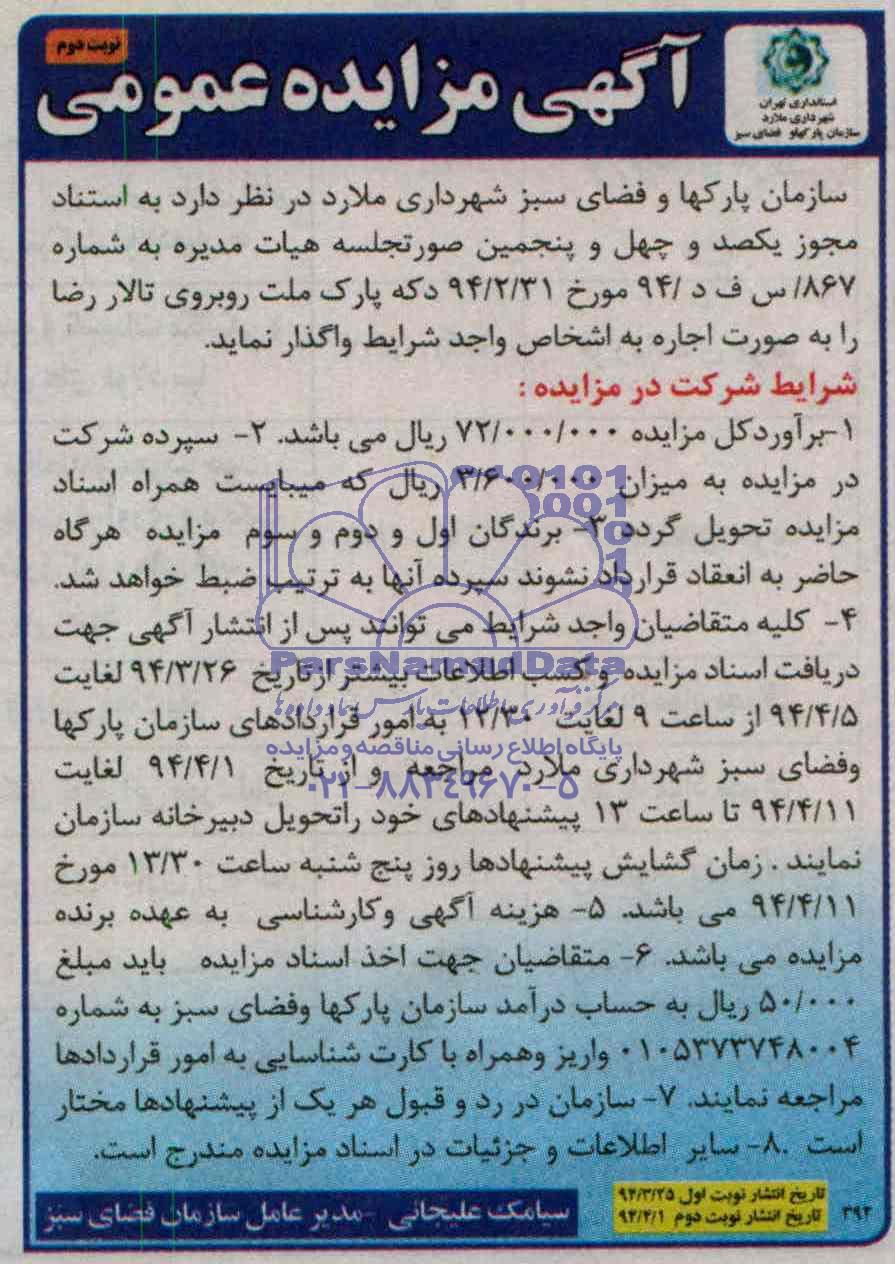 نوبت دوم
آگهی مزایده عمومی
استانداری تهران
شهرداری ملارد
سازمان پارکهاو فضای سبز
سازمان پارکها و فضای سبز شهرداری ملارد در نظر دارد به استناد
مجوز یکصد و چهل و پنجمین صورتجلسه هیات مدیره به شماره
۸۶۷/ س ف د /۹۴ مورخ ۹۴/۲/۳۱ دکه پارک ملت روبروی تالار رضا
را به صورت اجاره به اشخاص واجد شرایط واگذار نماید.
شرایط شرکت در مزایده :
۱-برآوردکل مزایده ۷۲/۰۰۰/۰۰۰ ریال می باشد. ۲- سپرده شرکت
در مزایده به میزان ۳/۶۰۰/۰۰۰ ریال که میبایست همراه اسناد
مزایده تحویل گردد ۳- برندگان اول و دوم و سوم مزایده هرگاه
حاضر به انعقاد قرارداد نشوند سپرده آنها به ترتیب ضبط خواهد شد.
۴- کلیه متقاضیان واجد شرایط می توانند پس از انتشار آگهی جهت
دریافت اسناد مزایده و کسب اطلاعات بیشتر ازتاریخ ۹۴/۳/۲۶ لغایت
۹۴/۴/۵ از ساعت ۹ لغایت ۱۲/۳۰ به امور قراردادهای سازمان پارکها
وفضای سبز شهرداری ملارد مراجعه و از تاریخ ۹۴/۴/۱ لغایت
۹۴/۴/۱۱ تا ساعت ۱۳ پیشنهادهای خود راتحویل دبیرخانه سازمان
نمایند . زمان گشایش پیشنهادها روز پنج شنبه ساعت ۱۳/۳۰ مورخ
۹۴/۴/۱۱ می باشد. ۵- هزینه آگهی وکارشناسی به عهده برنده
مزایده می باشد. ۶- متقاضیان جهت اخذ اسناد مزایده باید مبلغ
۵۰/۰۰۰ ریال به حساب درآمد سازمان پارکها وفضای سبز به شماره
۰۱۰۵۳۷۳۷۴۸۰۰۴ واریز وهمراه با کارت شناسایی به امور قراردادها
مراجعه نمایند. ۷- سازمان در رد و قبول هر یک از پیشنهادها مختار
است .۸- سایر اطلاعات و جزئیات در اسناد مزایده مندرج است.
ParsNamadData
مرکز فرآوری اطلاعات پارس نماد داده ها
پایگاه اطلاع رسانی مناقصه و مزایده
۰۲۱-۸۸۳۴۹۶۷۰-۵
۳۹۴
تاریخ انتشار نوبت اول ۹۴/۳/۲۵
تاریخ انتشار نوبت دوم ۹۴/۴/۱
سیامک علیجانی -مدیر عامل سازمان فضای سبز